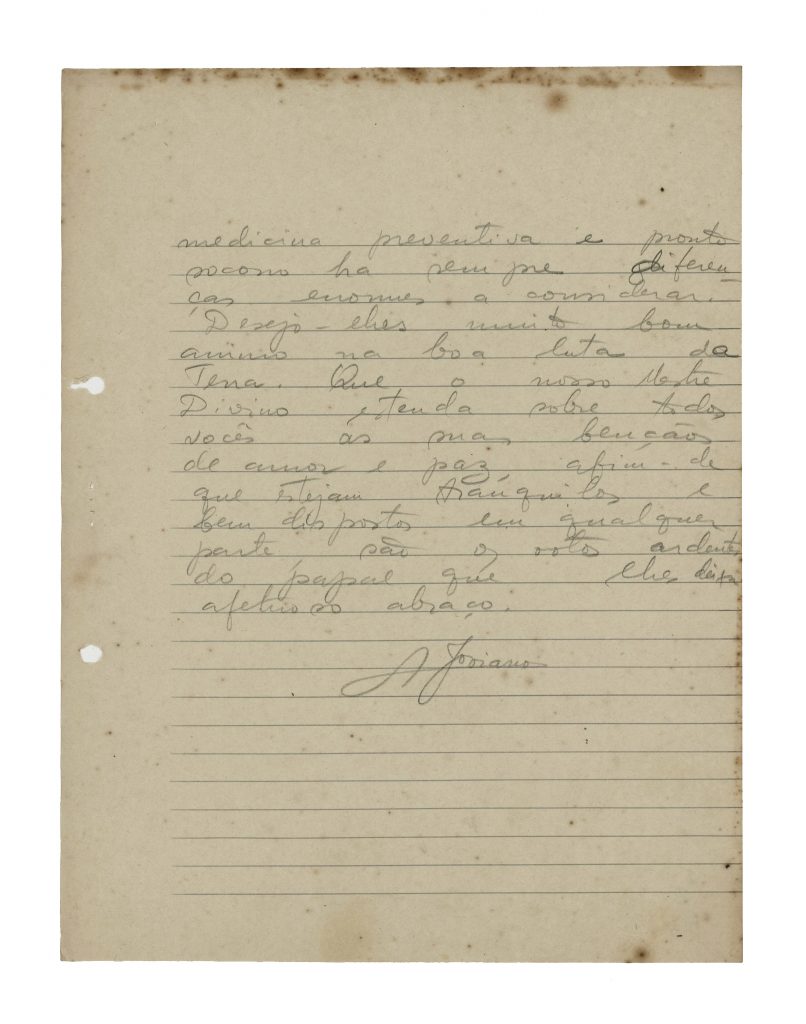 medicina preventiva e pronto
socorro ha sempre diferen-
ças enormes a considerar.
Desejo-lhes muito bom
animo na boa luta da
Terra. Que o nosso Mestre
Divino estenda sobre todos
vocês as suas bençãos
de amor e paz, afim-de
que estejam tranquilos e
bem dispostos em qualquer
parte, são os votos ardentes
do papai que lhes deixa
afetuoso abraço.
A Joviano